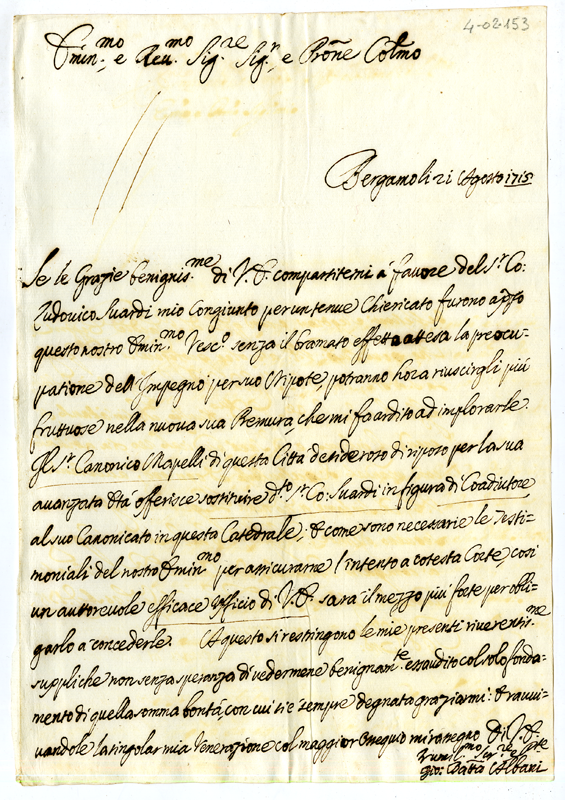 4-02-153
Emin.mo e Reu.mo Sig.re Sig.r e Prone Colmo
Bergamo li 21 Agosto 1715
Se le Grazie benignis.me di V.E. compartitemi à favore del S.r Co:
Ludovico Suardi mio Congiunto per un tenue Chiericato furono apṗo
questo nostro Emin.mo Vesc.o senza il bramato effetto attesa la preocu-
patione dell'Impegno per suo Nipote, potranno hora riuscirgli più
fruttuose nella nuova sua Premura, che mi fa ardito ad implorarle.
Il S.r Canonico Mapelli di questa Città desideroso di riposo per la sua
avanzata Età offerisce sostituire d.to S.r Co: Suardi in figura di Coadiutore
al suo Canonicato in questa Catedrale; E come sono necessarie le Testi-
moniali del nostro Emin.mo per assicurarne l'intento a cotesta Corte, così
un autorevole efficace Ufficio di V.E. sarà il mezzo più forte per obli-
garlo à concederle. A questo si restringono le mie presenti riverentis.me
suppliche non senza speranza di vedermene benignam.te essaudito col solo fonda-
mento di quella somma bontà, con cui si è sempre degnata graziarmi: E ravvi-
vandole la singolar mia Venerazione col maggior Ossequio mi rassegno Di V.E.
Humil.mo Ser.re
Gio: Batta Albani